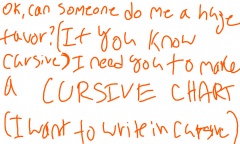 OK, can someone do me a huge
favor? (If you know
cursive) I need you to make
a CURSIVE CHART
(I want to write in cursive)